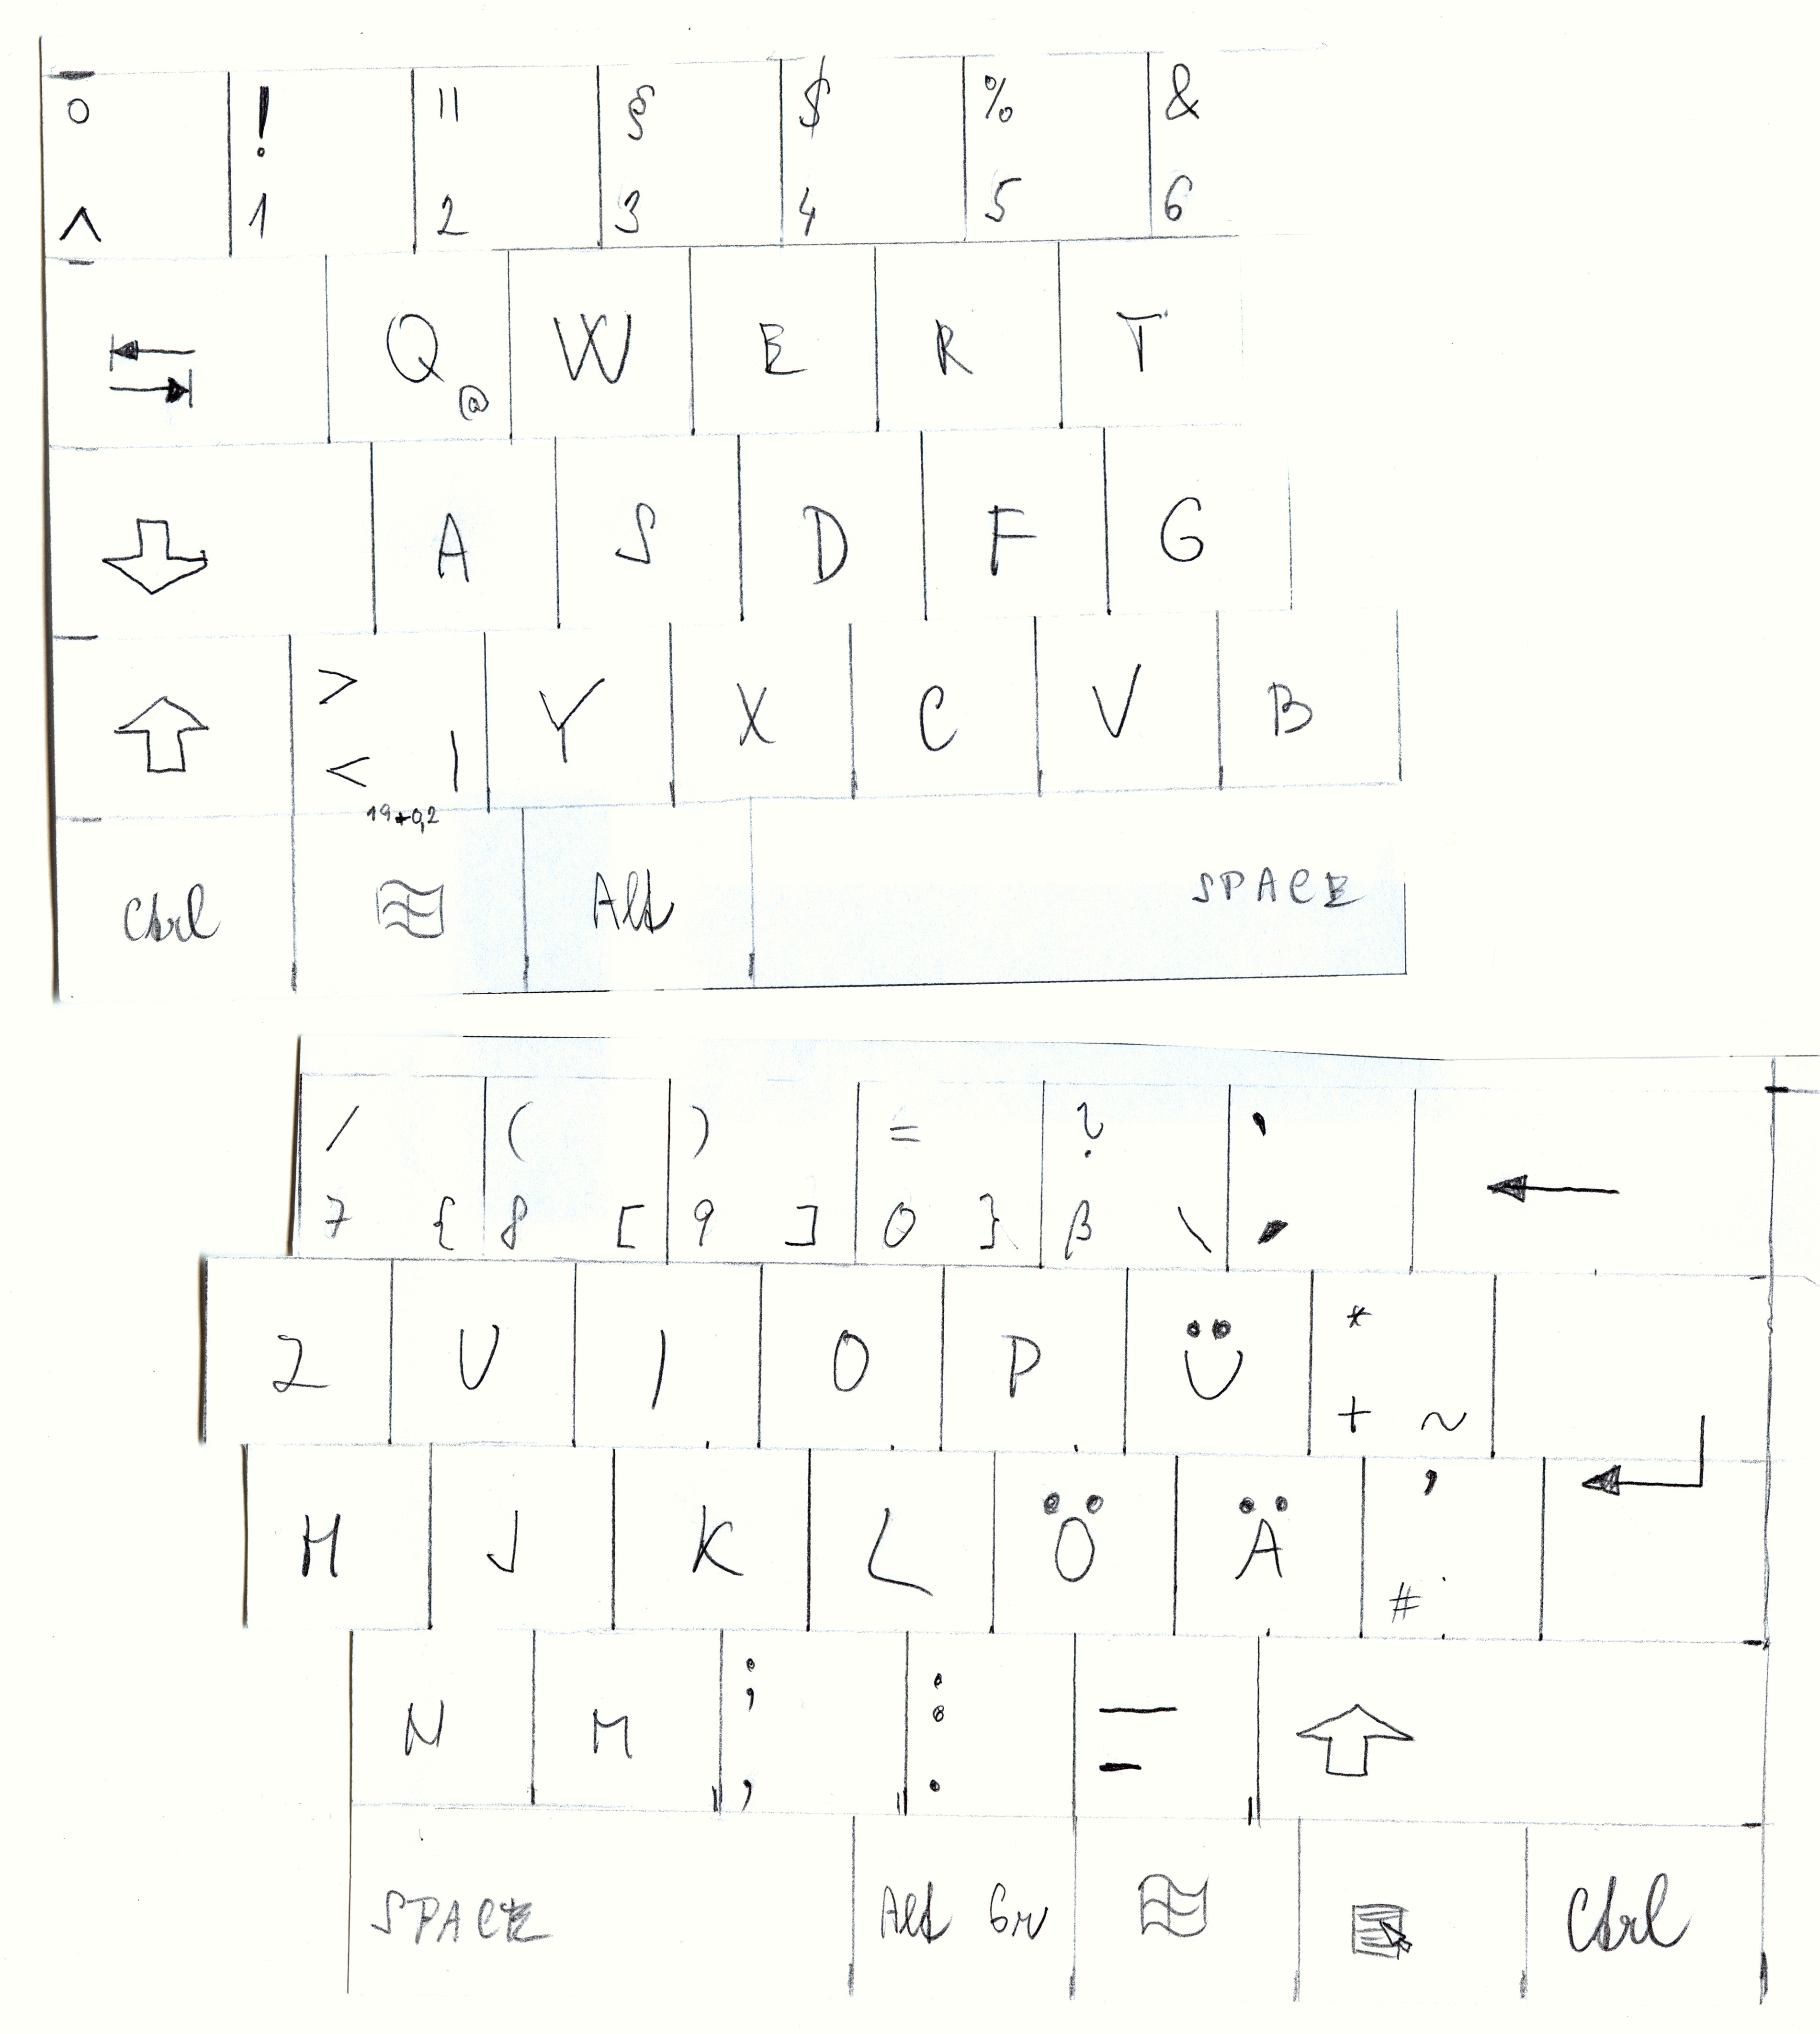 ° ! " § $ % &
^ 1 2 3 4 5 6
Q @ W E R T
A S D F G
> Y X C V B
< |
19+0,2
Ctrl Alt SPACE
/ ( ) = ? `
7 { 8 [ 9 ] 0 } ß \ ´
Z U I O P Ü *
+ ~
H J K L Ö Ä '
#
N M ; : _
, . -
SPACE Alt Gr Ctrl